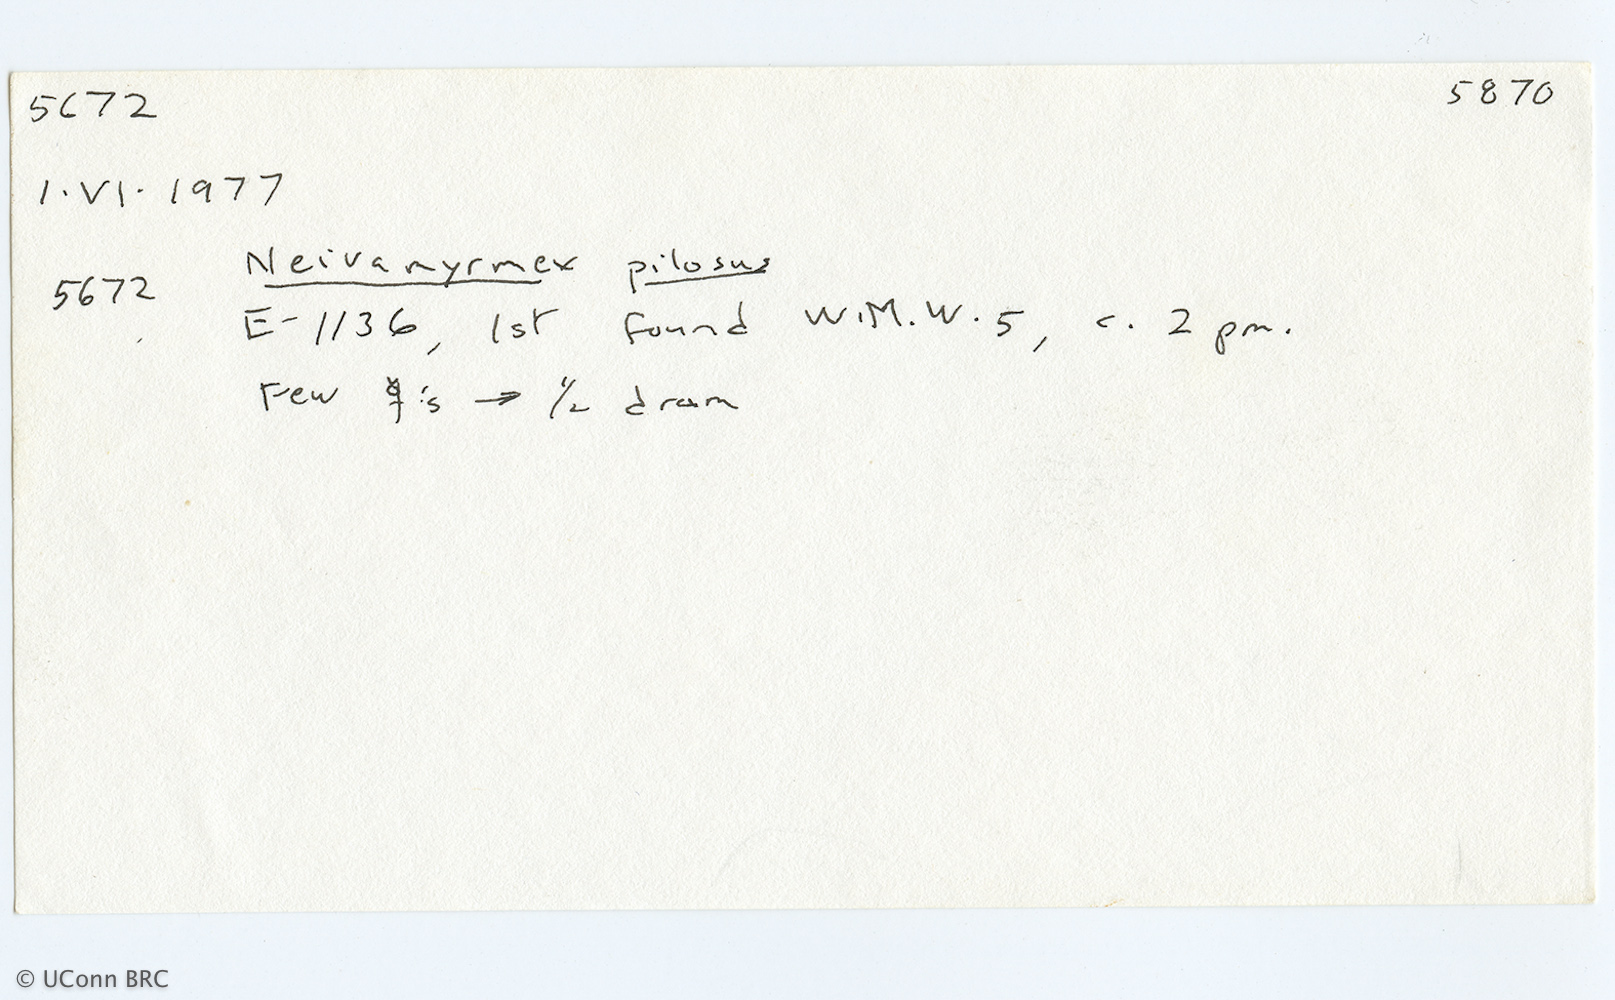 5672 5870
1·VI·1977
Neivamyrmex pilosus
5672
E-1136, 1st found W.M.W. 5, c. 2 pm.
Few ☿'s → 1/2 dram
© UConn BRC